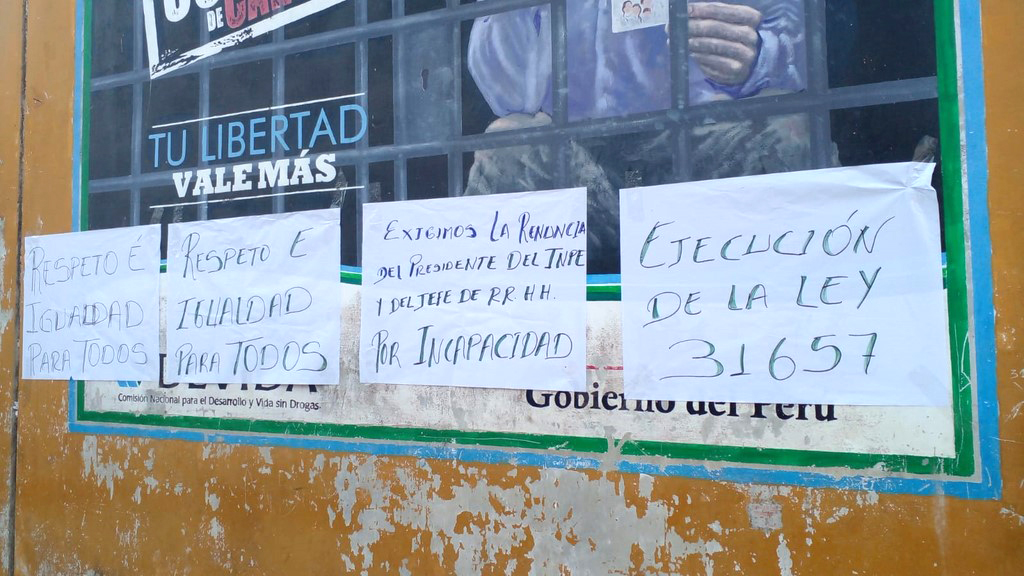 DE
TU LIBERTAD
VALE MÁS
RESPETO É
IGUALDAD
PARA TODOS
RESPETO E
IGUALDAD
PARA TODOS
EXIGIMOS LA RENUNCIA
DEL PRESIDENTE DEL INPE
Y DEL JEFE DE RR.HH.
POR INCAPACIDAD
EJECUCIÓN
DE LA LEY
31657
Comisión Nacional para el Desarrollo y Vida sin Drogas
Gobierno del Perú